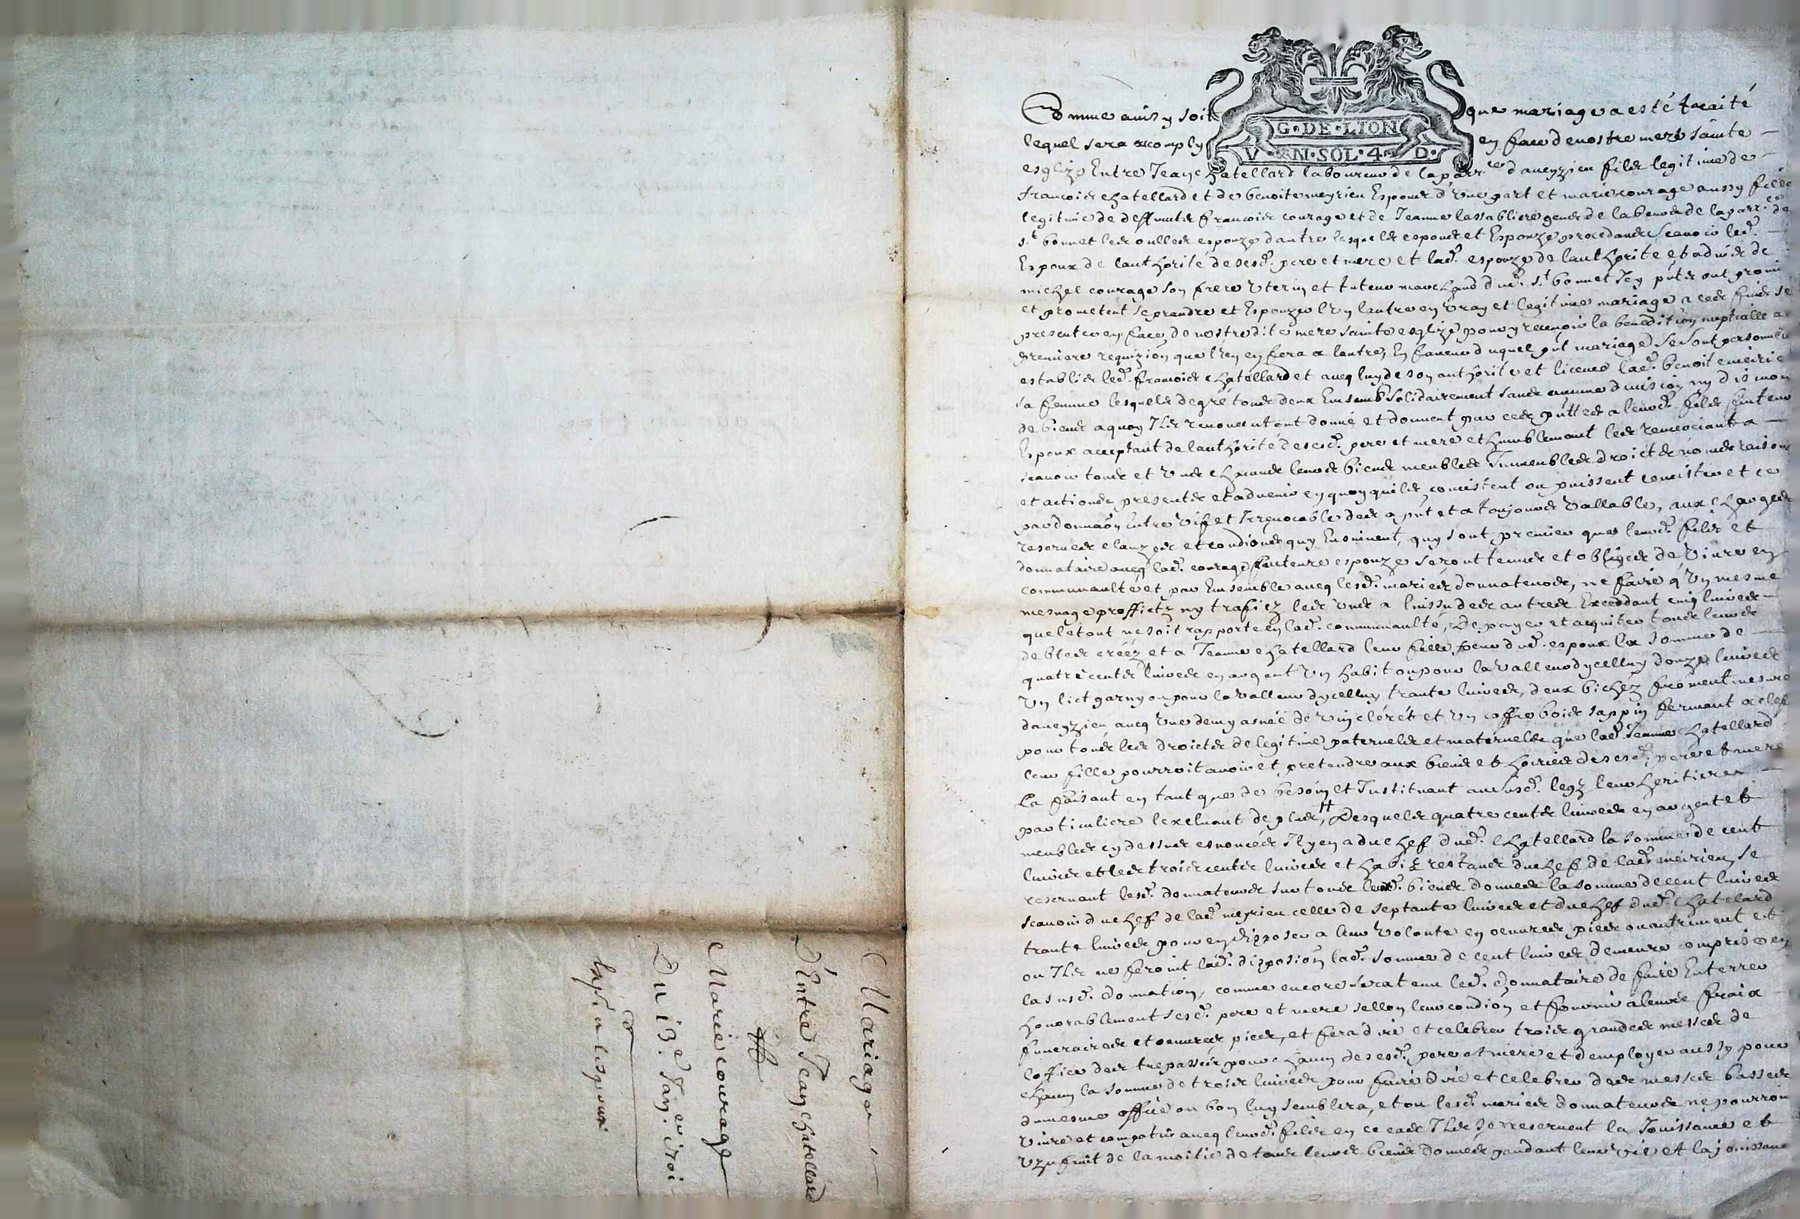 Mariage
D'entre Jean Chatellard
et
Marie courage
Du 13e Janer 1701
G·DE·LION
V·N·SOL·4·D·
Comme ainsy soit que mariage a esté traité
lequel sera acomply en face de nostre mere sainte
esglize Entre Jean Chatellard laboureur de la parr d'aveyzieu filz legitime de
francois chatellard et de benoite meyrieu Espoux d'une part et marie courage aussy fille
legitime de deffuntz francois courage et de Jeanne lassabliere de la parr de
st bonnet les oulles esponze d'autre lesquelz espoux et Esponze procedants scavoir led.
Espoux de l'authorité de sesd. pere et mere et lad. esponze de l'authorité et advis de
michel courage son frere uterin et tuteur marchand dud. st bonnet Icy pntz ont promis
et prometent se prendre et Esponzer l'un l'autre en vray et legitime mariage a ces fins se
presenter en face de nostredite mere sainte esglize pour y recevoir la benedition nuptialle a la
premiere requizion que l'un en fera a l'autre, En faveur duquel pnt mariage se sont personnel
establies led. francois chatellard et avecq luy de son authorité et licence lad. benoite meirieu
sa femme lesquelz de gré tous deux Ensemb. solidairement sans aucune division ny discution
de biens a quoy Ilz renoncent ont donné et donnent par ces pnttes a leurd. filz futeur
Espoux acceptant de l'authorité de sesd. pere et mere et humblement les remerciant
scavoir tous et uns chacuns leurs biens meubles Immeubles droictz noms raisons
et actions presentz et advenir en quoy quilz concistent ou puissent concister et ce
par donnaon Entre vifz et Irrevocable des a pnt et a toujours vallable, aux charges
reserves clauzes et condions quy Ensuivent, quy sont premier que leurd. filz et
donnataire avecq lad. courage futeure esponze seront tenus et obligés de vivre en
communaulté et par Ensemble avecq lesd. mariés donnateurs, ne faire qu'un mesme
mesnage proffictz ny trafiez les uns a l'insu des autres Excedant cinq livres
que le tout ne soit rapporté en lad. communaulté, De payer et acquiter tous leurs
debtes creez et a Jeanne chatellard leur fille seur dud. espoux la somme de
quatre centz livres en argent un habit ou pour la valleur dycelluy douze livres
un lict garny ou pour la valleur dycelluy trante livres, deux bichez froment mesure
d'aveyzieu avecq une demy asnée de vin cléret et un coffre bois sappin fermant a clef
pour tous les droictz de legitime paternelz et maternelz que lad. Jeanne chatellard
leur fille pourroit avoir et pretendre aux biens et hoiries de sesd. pere et mere
La faisant en tant que de besoin et Instituant aud. legz leur heritiere
particuliere l'excluant de plus, Desquelz quatre centz livres en argent et
meubles cy dessus enoncés Il y en a du chef dud. chatellard la somme de cent
livres et les trois centz livres et habitz restans du chef de lad. meirieu, se
reservant lesd. donnateurs sur tous lesd. biens donnés la somme de cent livres
scavoir du chef de lad. meyrieu celle de septante livres et du chef dud. chatelard
trante livres pour en disposer a leur volonté en oeuvres pies ou autrement et
ou Ilz ne feroint lad. disposion lad. somme de cent livres demeure comprise en
la susd. donnation, comme encore sera tenu led. donnataire de faire Enterrer
honorablement sesd. pere et mere sellon leur condion et fournir a leurs fraix
funeraires et oeuvres pies, et fera dire et celebrer trois grandes messes de
l'office des trepassés pour chacun de sesd. pere et mere et d'employer aussy pour
chacun la somme de trois livres pour faire dire et celebrer des messes basses
du mesme office ou bon luy semblera, et ou lesd. mariés donnateurs ne pourroint
vivre et compatir avecq leurd. filz en ce cas Ilz se reservent la Jouissance et
uzufruit de la moitié de tous leurs biens donnés pandant leur vie et la jouissance